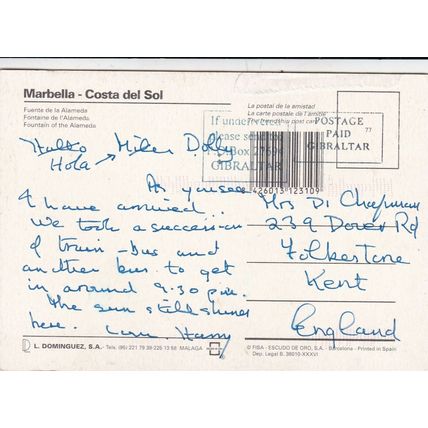 Marbella - Costa del Sol
Fuente de la Alameda
Fontaine de l'Alameda
Fountain of the Alameda
La postal de la amistad
La carte postale de l'amitié
The friendship post card
If undelivered
please send to
Box 27694
GIBRALTAR
POSTAGE
PAID
GIBRALTAR
77
426013 123109
Hola → Dolly
As you see
I have arrived...
We took a succession
of train - bus and
another bus to get
in around 9.30 p.m.
The sun still shines
here. Love. Harry
Mrs Di Chapman
239 Dover Rd
Folkestone
Kent
England
L. DOMINGUEZ, S.A.- Tels. (95) 221 79 38-226 13 58 MALAGA
© FISA - ESCUDO DE ORO, S.A. - Barcelona - Printed in Spain
Dep. Legal B. 38010-XXXVI